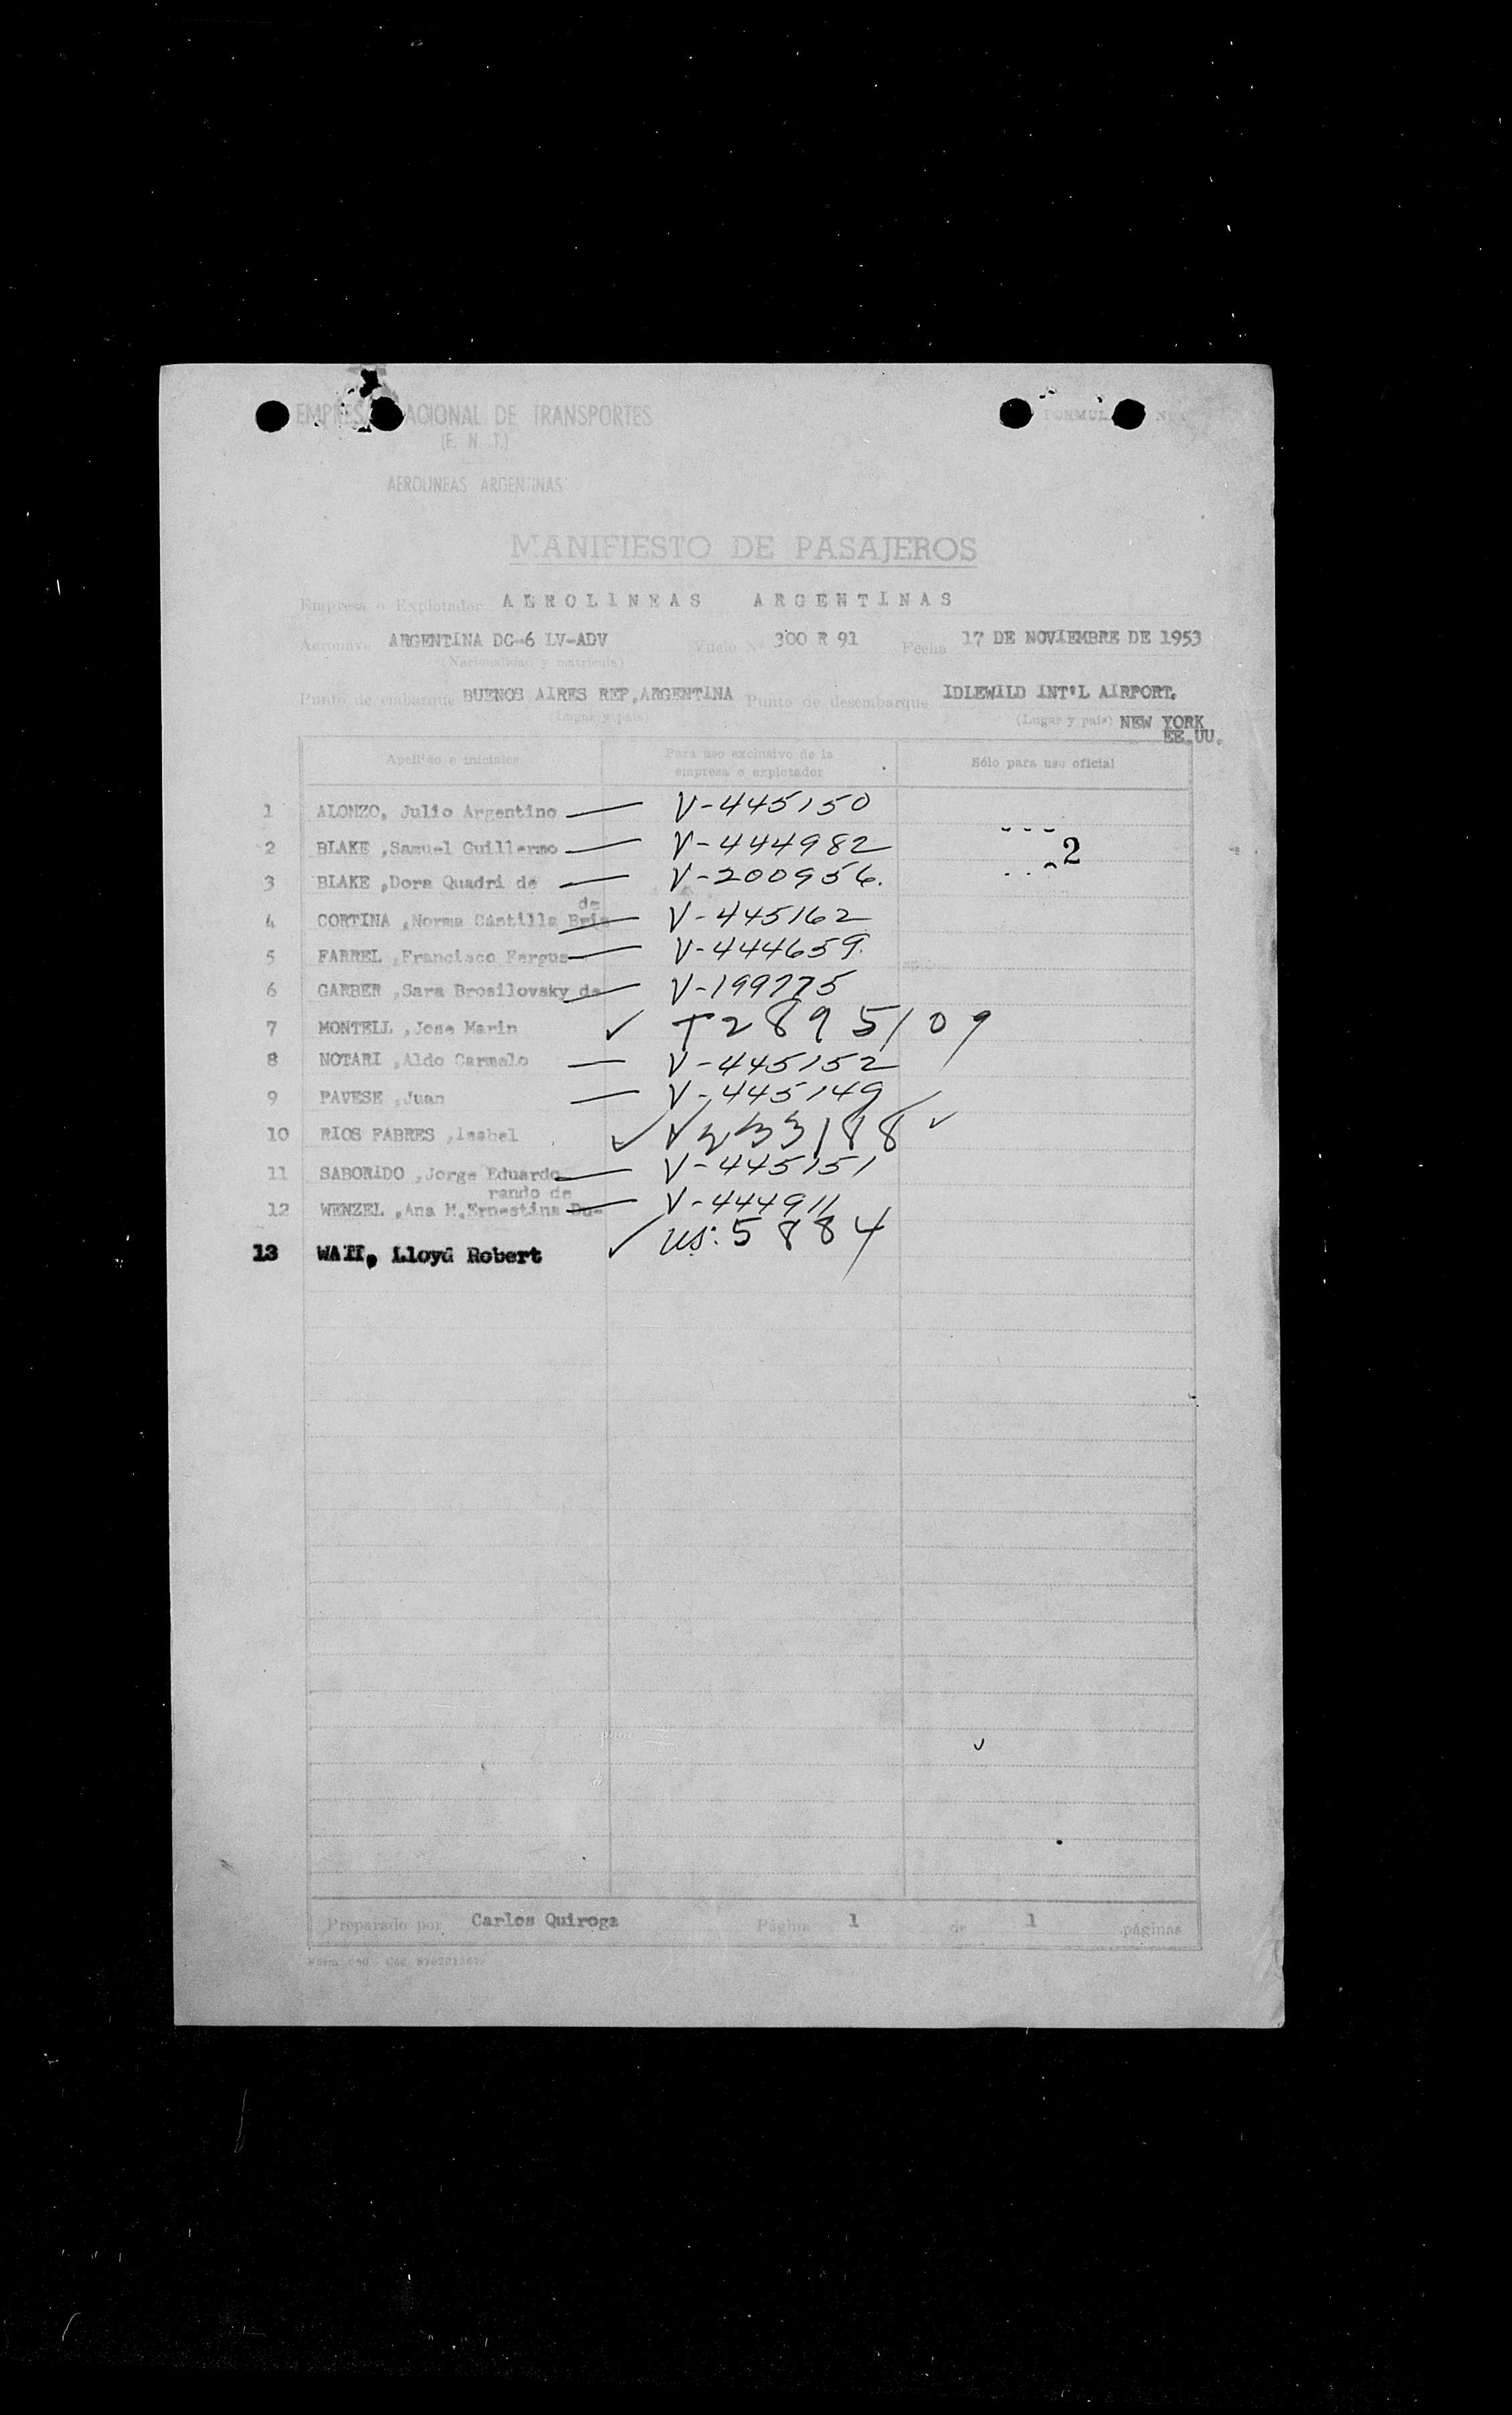 EMPRESA NACIONAL DE TRANSPORTES
(E. N. T.)
AEROLINEAS ARGENTINAS
FORMUL
MANIFIESTO DE PASAJEROS
Empresa o Explotador AEROLINEAS ARGENTINAS
Aeronave ARGENTINA DC-6 LV-ADV Vuelo Nº 300 R 91 Fecha 17 DE NOVIEMBRE DE 1953
(Nacionalidad y matrícula)
Punto de embarque BUENOS AIRES REP.ARGENTINA Punto de desembarque IDLEWILD INT'L AIRPORT.
(Lugar y país) (Lugar y país) NEW YORK
EE.UU.
Apellido e iniciales Para uso exclusivo de la empresa o explotador Sólo para uso oficial
1 ALONZO, Julio Argentino — V-445150
2 BLAKE ,Samuel Guillermo — V-444982 2
3 BLAKE ,Dora Quadri de — V-200956.
de
4 CORTINA ,Norma Castilla — V-445162
5 FARREL ,Francisco Fergus — V-444659.
6 GARBER ,Sara Brosilovsky de — V-199775
7 MONTELL ,Jose Marin ✓ T2895109
8 NOTARI ,Aldo Carmelo — V-445152
9 PAVESE ,Juan — V-445149
10 RIOS FABRES ,Isabel ✓ V233188 ✓
11 SABORIDO ,Jorge Eduardo — V-445151
rando de
12 WENZEL ,Ana M.Ernestina Du- — V-444911
13 Lloyd Robert ✓ US: 5884
Preparado por Carlos Quiroga Página 1 de 1 páginas